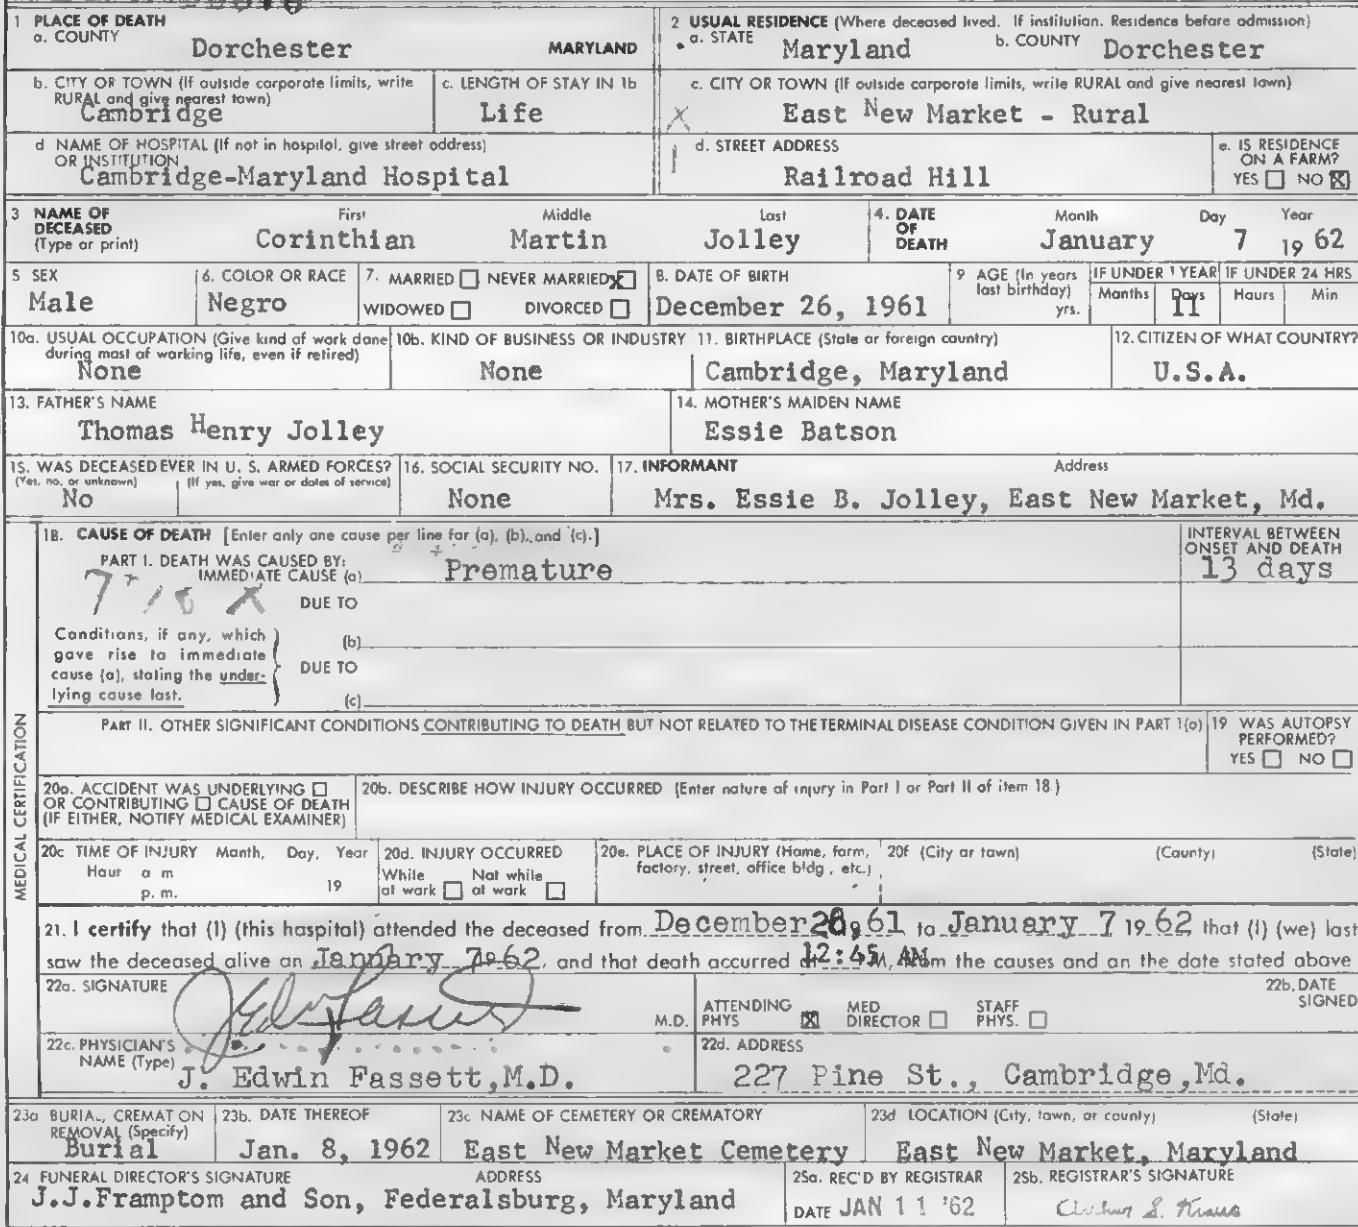 1 PLACE OF DEATH
a. COUNTY
Dorchester MARYLAND
2 USUAL RESIDENCE (Where deceased lived. If institution. Residence before admission)
a. STATE Maryland b. COUNTY Dorchester
b. CITY OR TOWN (If outside corporate limits, write RURAL and give nearest town)
Cambridge
c. LENGTH OF STAY IN 1b
Life
c. CITY OR TOWN (If outside corporate limits, write RURAL and give nearest town)
East New Market - Rural
d NAME OF HOSPITAL (If not in hospital, give street address)
OR INSTITUTION
Cambridge-Maryland Hospital
d. STREET ADDRESS
Railroad Hill
e. IS RESIDENCE
ON A FARM?
YES ☐ NO ☒
3 NAME OF
DECEASED
(Type or print)
First Middle Last
Corinthian Martin Jolley
4. DATE
OF
DEATH
Month Day Year
January 7 19 62
5 SEX
Male
6. COLOR OR RACE
Negro
7. MARRIED ☐ NEVER MARRIED ☒
WIDOWED ☐ DIVORCED ☐
8. DATE OF BIRTH
December 26, 1961
9 AGE (In years
last birthday)
yrs.
IF UNDER 1 YEAR IF UNDER 24 HRS
Months Days Hours Min
11
10a. USUAL OCCUPATION (Give kind of work done
during most of working life, even if retired)
None
10b. KIND OF BUSINESS OR INDUSTRY
None
11. BIRTHPLACE (State or foreign country)
Cambridge, Maryland
12. CITIZEN OF WHAT COUNTRY?
U.S.A.
13. FATHER'S NAME
Thomas Henry Jolley
14. MOTHER'S MAIDEN NAME
Essie Batson
15. WAS DECEASED EVER IN U. S. ARMED FORCES?
(Yes, no, or unknown) (If yes, give war or dates of service)
No
16. SOCIAL SECURITY NO.
None
17. INFORMANT Address
Mrs. Essie B. Jolley, East New Market, Md.
MEDICAL CERTIFICATION
18. CAUSE OF DEATH [Enter only one cause per line for (a), (b), and (c).]
INTERVAL BETWEEN
ONSET AND DEATH
PART I. DEATH WAS CAUSED BY:
IMMEDIATE CAUSE (a) Premature 13 days
DUE TO
Conditions, if any, which
gave rise to immediate
cause (a), stating the under-
lying cause last.
(b)
DUE TO
(c)
PART II. OTHER SIGNIFICANT CONDITIONS CONTRIBUTING TO DEATH BUT NOT RELATED TO THE TERMINAL DISEASE CONDITION GIVEN IN PART 1(a)
19 WAS AUTOPSY
PERFORMED?
YES ☐ NO ☐
20a. ACCIDENT WAS UNDERLYING ☐
OR CONTRIBUTING ☐ CAUSE OF DEATH
(IF EITHER, NOTIFY MEDICAL EXAMINER)
20b. DESCRIBE HOW INJURY OCCURRED (Enter nature of injury in Part I or Part II of item 18.)
20c TIME OF INJURY Month, Day, Year
Hour a m
p. m. 19
20d. INJURY OCCURRED
While Not while
at work ☐ at work ☐
20e. PLACE OF INJURY (Home, farm,
factory, street, office bldg., etc.)
20f (City or town) (County) (State)
21. I certify that (I) (this hospital) attended the deceased from December 61 to January 7 19 62 that (I) (we) last
saw the deceased alive on January 7 1962, and that death occurred at 12:45 M, AM from the causes and on the date stated above
22a. SIGNATURE
J Edw Fassett M.D.
ATTENDING
PHYS ☒
MED
DIRECTOR ☐
STAFF
PHYS. ☐
22b. DATE
SIGNED
22c. PHYSICIAN'S
NAME (Type)
J. Edwin Fassett,M.D.
22d. ADDRESS
227 Pine St., Cambridge,Md.
23a BURIAL, CREMATION
REMOVAL (Specify)
Burial
23b. DATE THEREOF
Jan. 8, 1962
23c NAME OF CEMETERY OR CREMATORY
East New Market Cemetery
23d LOCATION (City, town, or county) (State)
East New Market, Maryland
24 FUNERAL DIRECTOR'S SIGNATURE ADDRESS
J.J.Framptom and Son, Federalsburg, Maryland
25a. REC'D BY REGISTRAR
DATE JAN 11 '62
25b. REGISTRAR'S SIGNATURE
Arthur S. Kraus